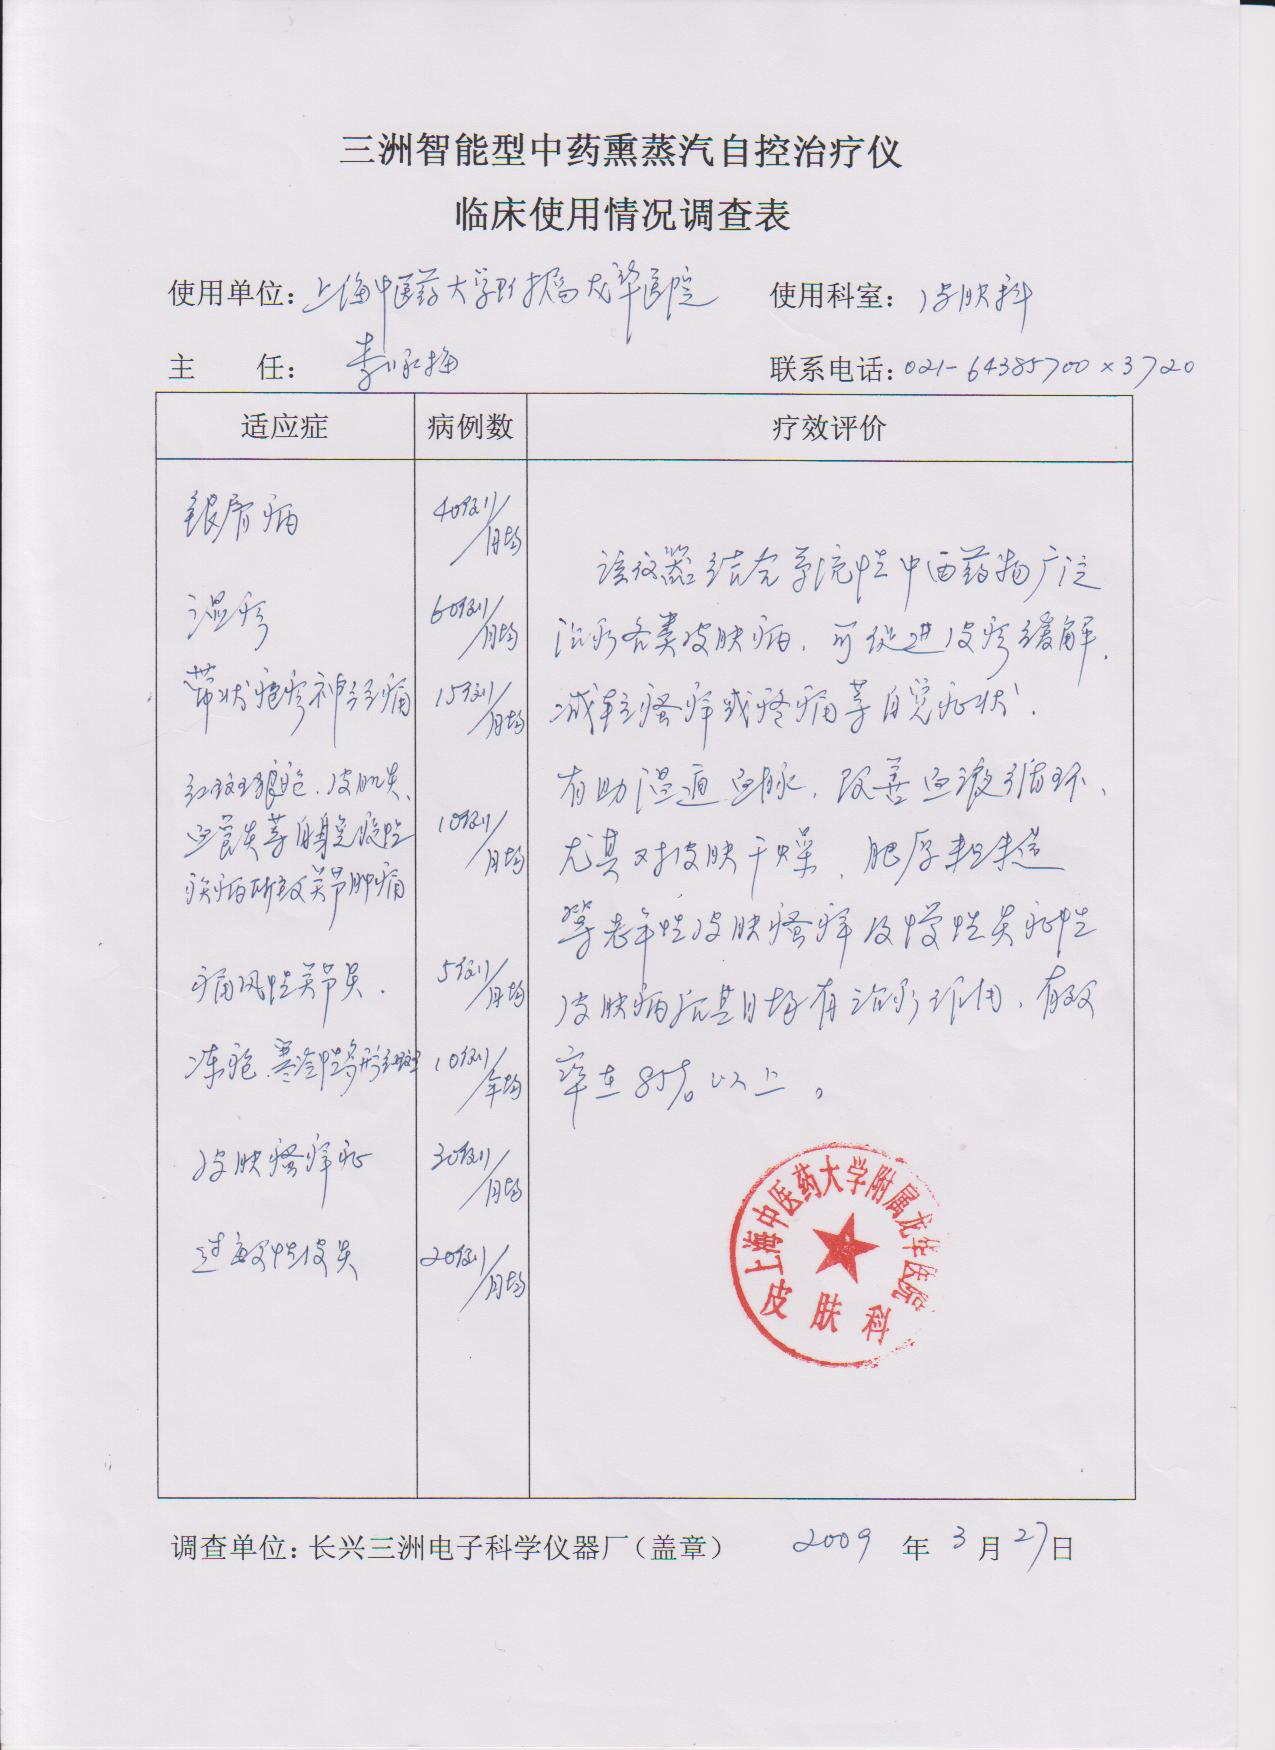 三洲智能型中药熏蒸汽自控治疗仪
临床使用情况调查表
使用单位：上海中医药大学附属龙华医院 使用科室：皮肤科
主 任：李咏梅 联系电话：021-64385700×3720
适应症 病例数 疗效评价
银屑病 40例/月均
湿疹 60例/月均
带状疱疹神经痛 15例/月均
红斑狼疮、皮肌炎、
血管炎等自身免疫性 10例/月均
疾病所致关节肿痛
痛风性关节炎. 5例/月均
冻疮、寒冷性多形红斑 10例/年均
皮肤瘙痒症 30例/月均
过敏性皮炎 20例/月均
该仪器结合 中西药物广泛
治疗各类皮肤病，可促进皮疹缓解，
减轻瘙痒或疼痛等自觉症状.
有助温通血脉，改善血液循环、
尤其对皮肤干燥、肥厚粗糙
等老年性皮肤瘙痒及慢性炎症性
皮肤病 有治疗作用，有效
率在85%以上。
上海中医药大学附属龙华医院
皮肤科
调查单位：长兴三洲电子科学仪器厂（盖章） 2009 年 3 月 27 日